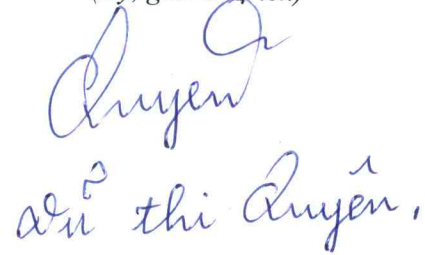 Quyen
Vũ thi Quyên,